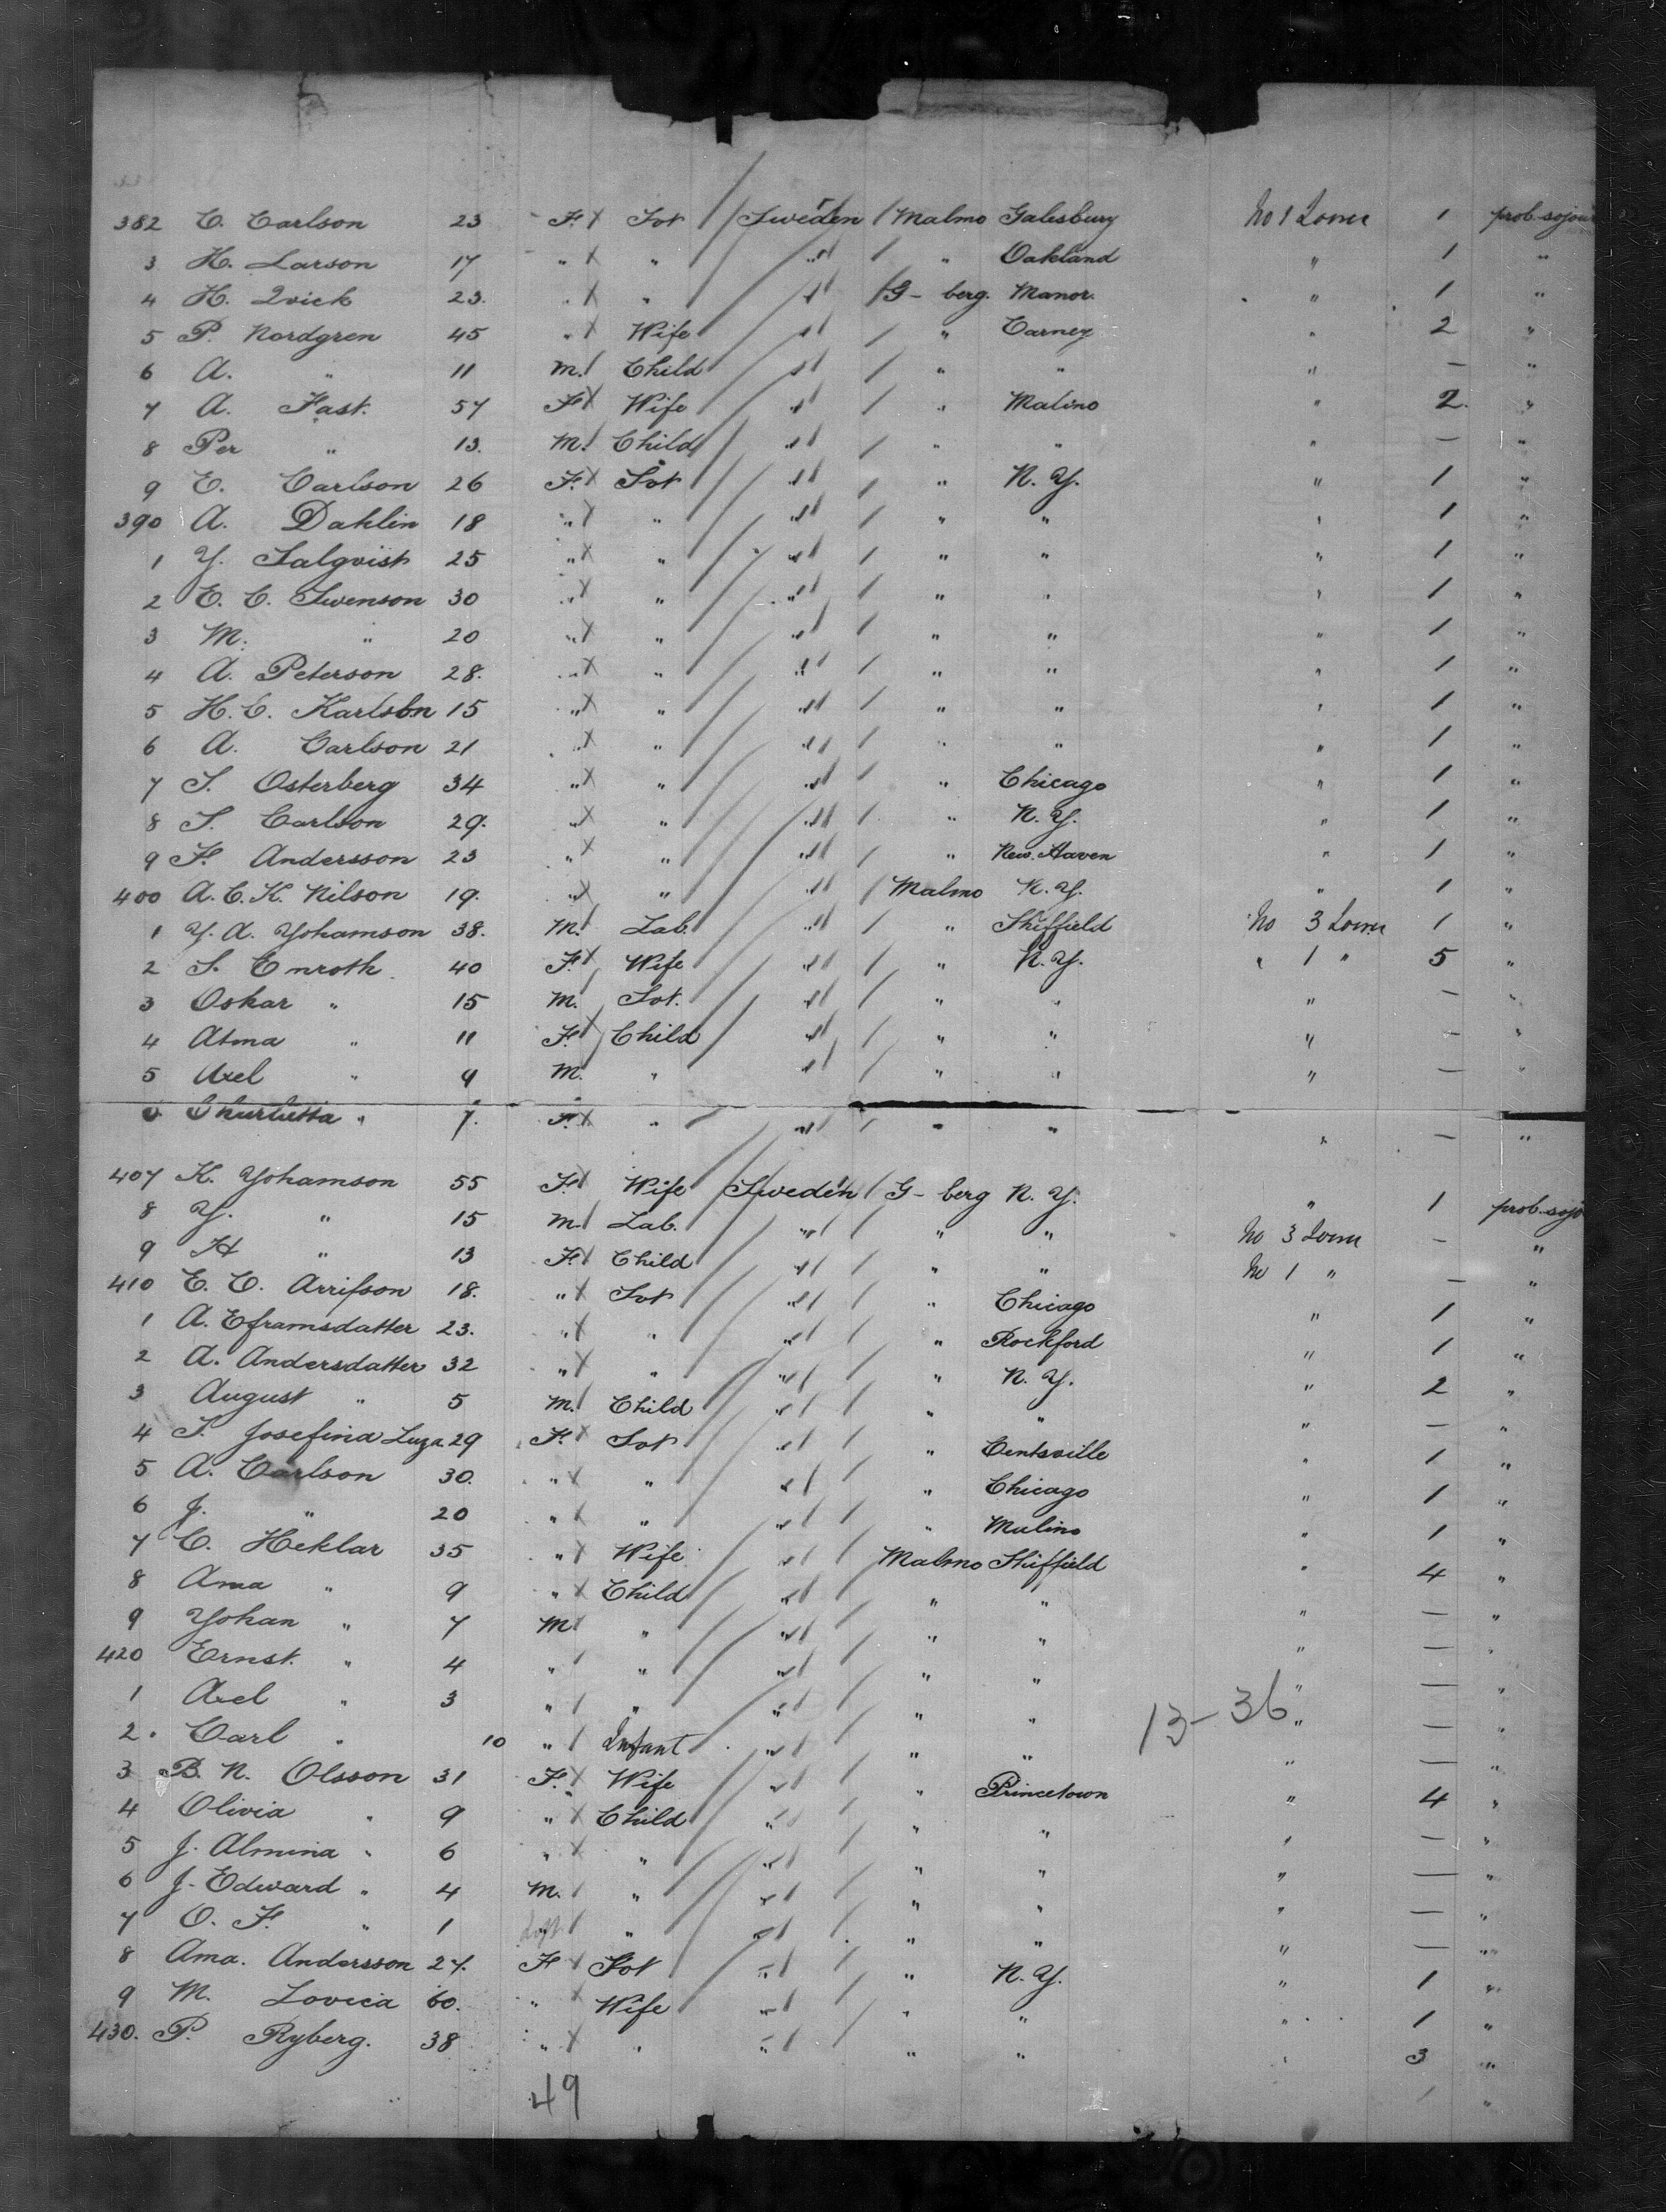 382 C. Carlson 23 F. Svt Sweden Malmo Galesburg No 1 Lower 1 prob. sojour
3 H. Larson 17 " " " " Oakland " 1 "
4 H. Qvick 23. " " " G-berg. Manor. " 1 "
5 P. Nordgren 45 " Wife " " Carney " 2 "
6 A. " 11 M. Child " " " " — "
7 A. Fast. 57 F Wife " " Malino " 2. "
8 Per " 13. M. Child " " " " — "
9 E. Carlson 26 F. Svt " " N. Y. " 1 "
390 A. Dahlin 18 " " " " " " 1 "
1 Y. Salqvist 25 " " " " " " 1 "
2 E. C. Swenson 30 " " " " " " 1 "
3 M. " 20 " " " " " " 1 "
4 A. Peterson 28. " " " " " " 1 "
5 H. C. Karlson 15 " " " " " " 1 "
6 A. Carlson 21 " " " " " " 1 "
7 S. Osterberg 34 " " " " Chicago " 1 "
8 S. Carlson 29. " " " " N. Y. " 1 "
9 F. Andersson 23 " " " " New. Haven " 1 "
400 A. C. K. Nilson 19. " " " Malmo N. Y. " 1 "
1 Y. A. Yohamson 38. M. Lab. " " Sheffield No 3 Lower 1 "
2 S. Enroth 40 F. Wife " " N. Y. " 1 " 5 "
3 Oskar " 15 M. Svt. " " " " — "
4 Atma " 11 F. Child " " " " — "
5 Axel " 9 M. " " " " " — "
6 " 7. F. " " " " " — "
407 K. Yohamson 55 F. Wife Sweden G-berg N. Y. " 1 prob. sojo
8 Y. " 15 M. Lab. " " " No 3 Lower — "
9 H " 13 F. Child " " " No 1 " — "
410 E. C. Arrifson 18. " Svt " " Chicago " 1 "
1 A. Eframsdatter 23. " " " " Rockford " 1 "
2 A. Andersdatter 32 " " " " N. Y. " 2 "
3 August " 5 M. Child " " " " — "
4 S. Josefina Luza 29 F. Svt " " Centsville " 1 "
5 A. Carlson 30. " " " " Chicago " 1 "
6 J. " 20 " " " " Mulino " 1 "
7 C. Heklar 35 " Wife " Malmo Sheffield " 4 "
8 Ama " 9 " Child " " " " — "
9 Yohan " 7 M " " " " " — "
420 Ernst. " 4 " " " " " " — "
1 Axel " 3 " " " " " 13-36 " — "
2 Carl " 10 " Infant " " " " — "
3 B. N. Olsson 31 F. Wife " " Princetown " 4 "
4 Olivia " 9 " Child " " " " — "
5 J. Almina " 6 " " " " " " — "
6 J. Edward " 4 M. " " " " " — "
7 O. F. " 1 " " " " " — "
8 Ama. Andersson 27. F Svt " " N. Y. " 1 "
9 M. Lovica 60. " Wife " " " " 1 "
430. P. Ryberg. 38 " " " " " " 3 "
49